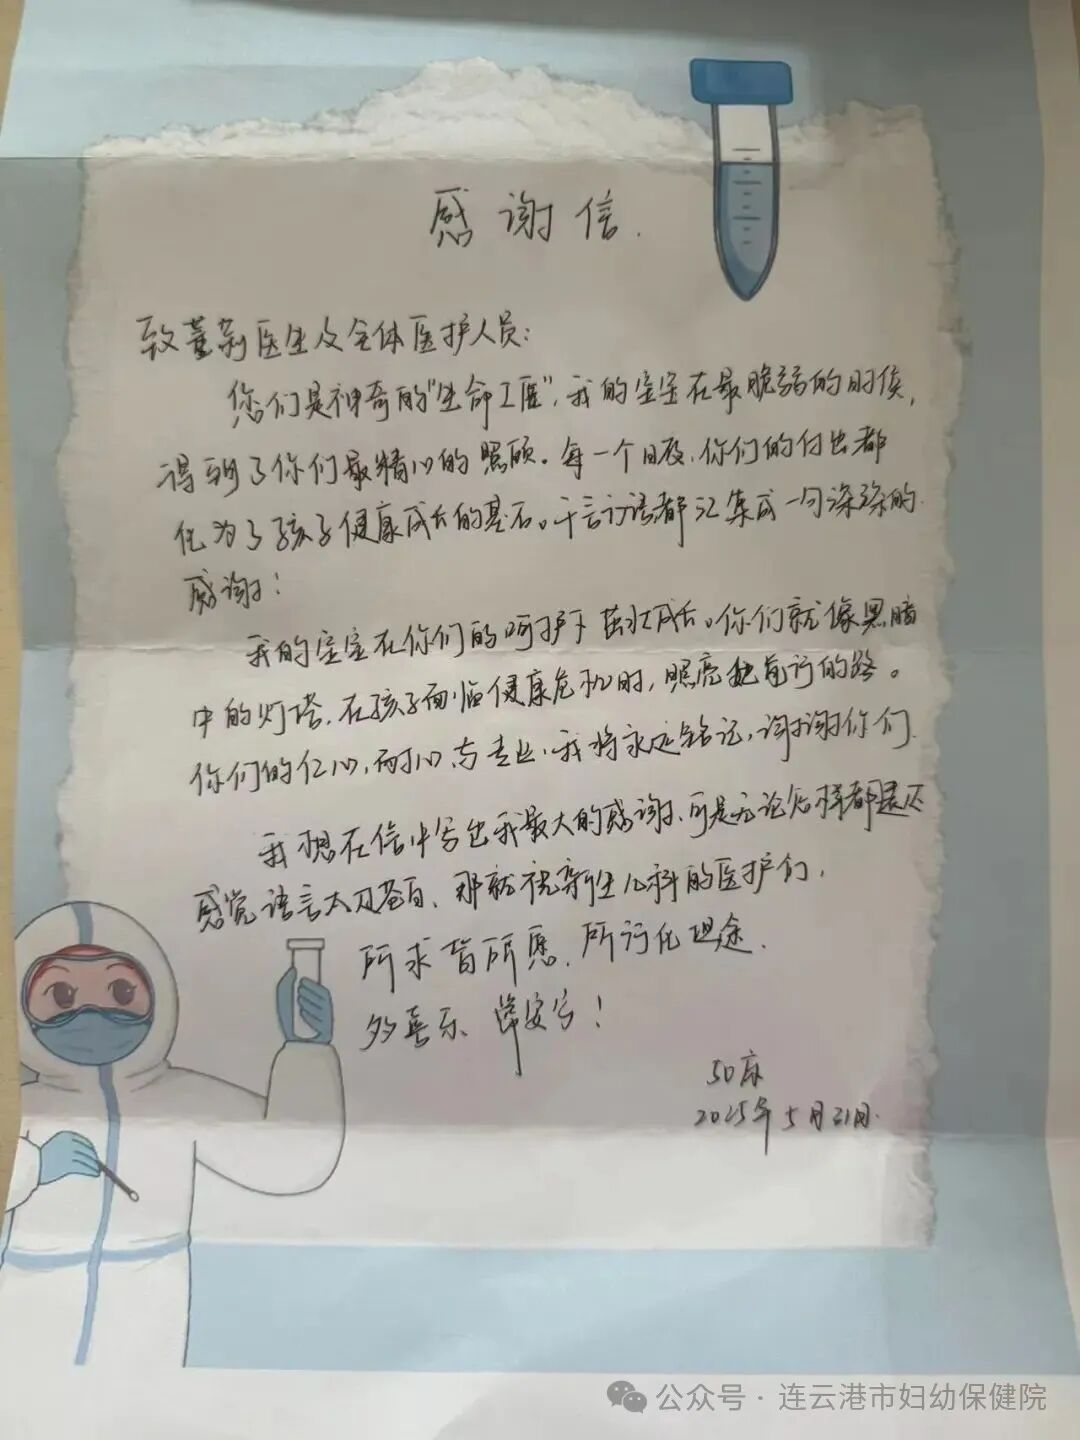 感谢信.
致董新医生及全体医护人员:
您们是神奇的"生命工匠",我的宝宝在最脆弱的时候,
得到了你们最精心的照顾。每一个日夜,你们的付出都
化为了孩子健康成长的基石。千言万语都汇集成一句深深的
感谢!
我的宝宝在你们的呵护下茁壮成长。你们就像黑暗
中的灯塔,在孩子面临健康危机时,照亮她前行的路。
你们的仁心,耐心与专业,我将永远铭记,谢谢你们.
我想在信中写出我最大的感谢,可是无论怎样都是还
感觉语言太过苍白、那就祝新生儿科的医护们,
所求皆所愿,所行化坦途.
多喜乐、常安宁!
50床
2025年5月21日.
公众号·连云港市妇幼保健院